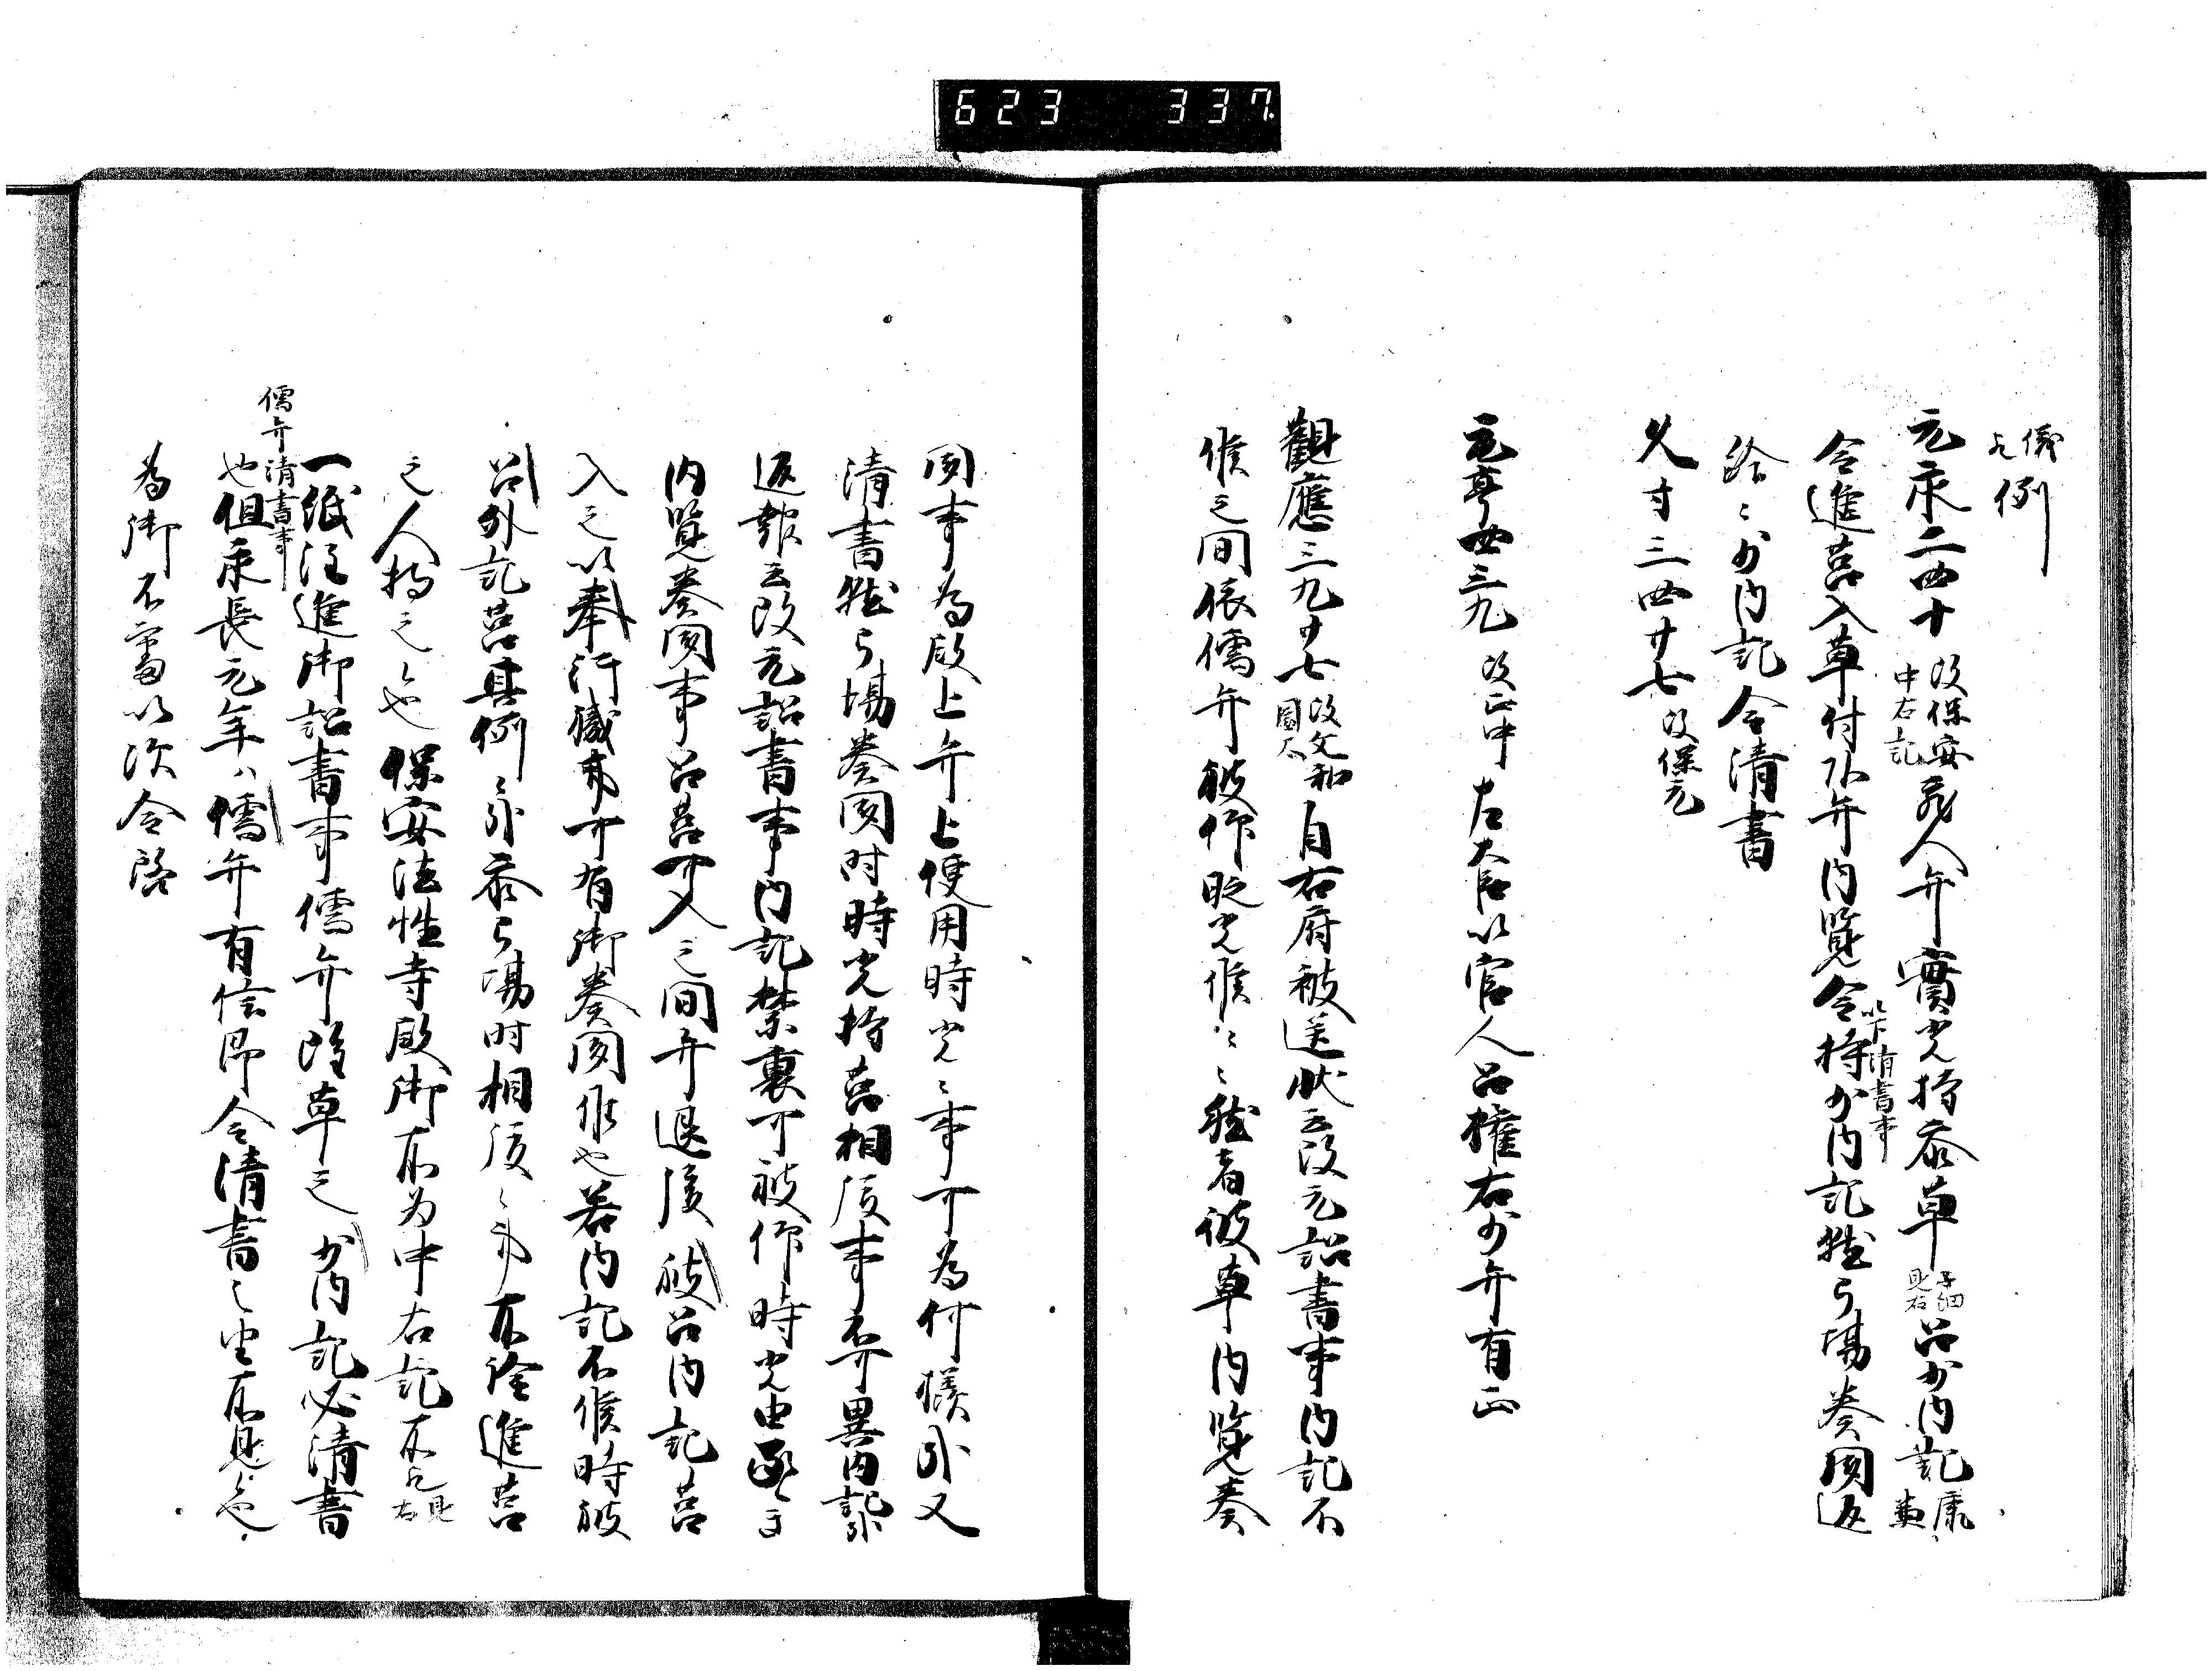 623 337
儀例
元永二四十 改保安 中右記 蔵人弁實光持参草 子細見右 召少内記 康兼
令進莒入草付外弁内覧令持少内記就弓場奏聞返
以下清書事
給々少内記令清書
久寿三四廿七 改保元
元亨四三九 改正中 左大臣以官人召権右少弁有正
觀應三九廿七 改文和 園太 自右府被送状云改元詔書事内記不
候之間依儒弁被仰時光候々々然者彼草内覧奏
聞事為殿上弁上便用時光々事可為何様哉又
清書就弓場奏聞時時光持莒相従事不可異内記歟
返報云改元詔書事内記禁裏可被仰時光由承了
内覧奏聞事召莒可入之間弁退後被召内記莒
入之以奉行職事可有御奏聞候也若内記不候時被
召外記莒其例候歟参弓場時相従々事不論進莒
之人持之也保安法性寺殿御所為中右記所見 見右
儒弁清書事
一紙注進御詔書事儒弁雖草之少内記必清書
也但永長元年八儒弁有信即令清書之由所見也
為御不審以次令啓